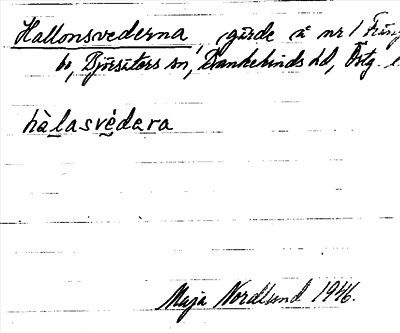 Hallonsvederna, gärde å nr 1 Fring
bo, Björsäters sn, Bankekinds hd, Östg. l
hàlasvédara
Maja Nordlund 1946.